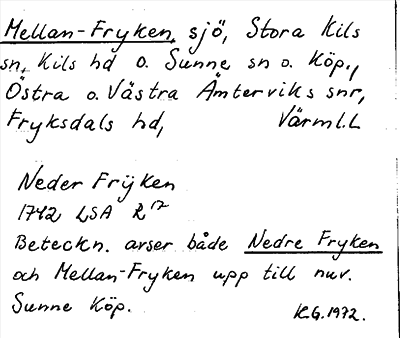 Mellan-Fryken, sjö, Stora Kils
sn, Kils hd o. Sunne sn o. Köp.,
Östra o. Västra Ämterviks snr,
Fryksdals hd, Värml.L
Neder Frÿken
1742 LSA R 17
Beteckn. avser både Nedre Fryken
och Mellan-Fryken upp till nuv.
Sunne Köp.
K.G.1972.